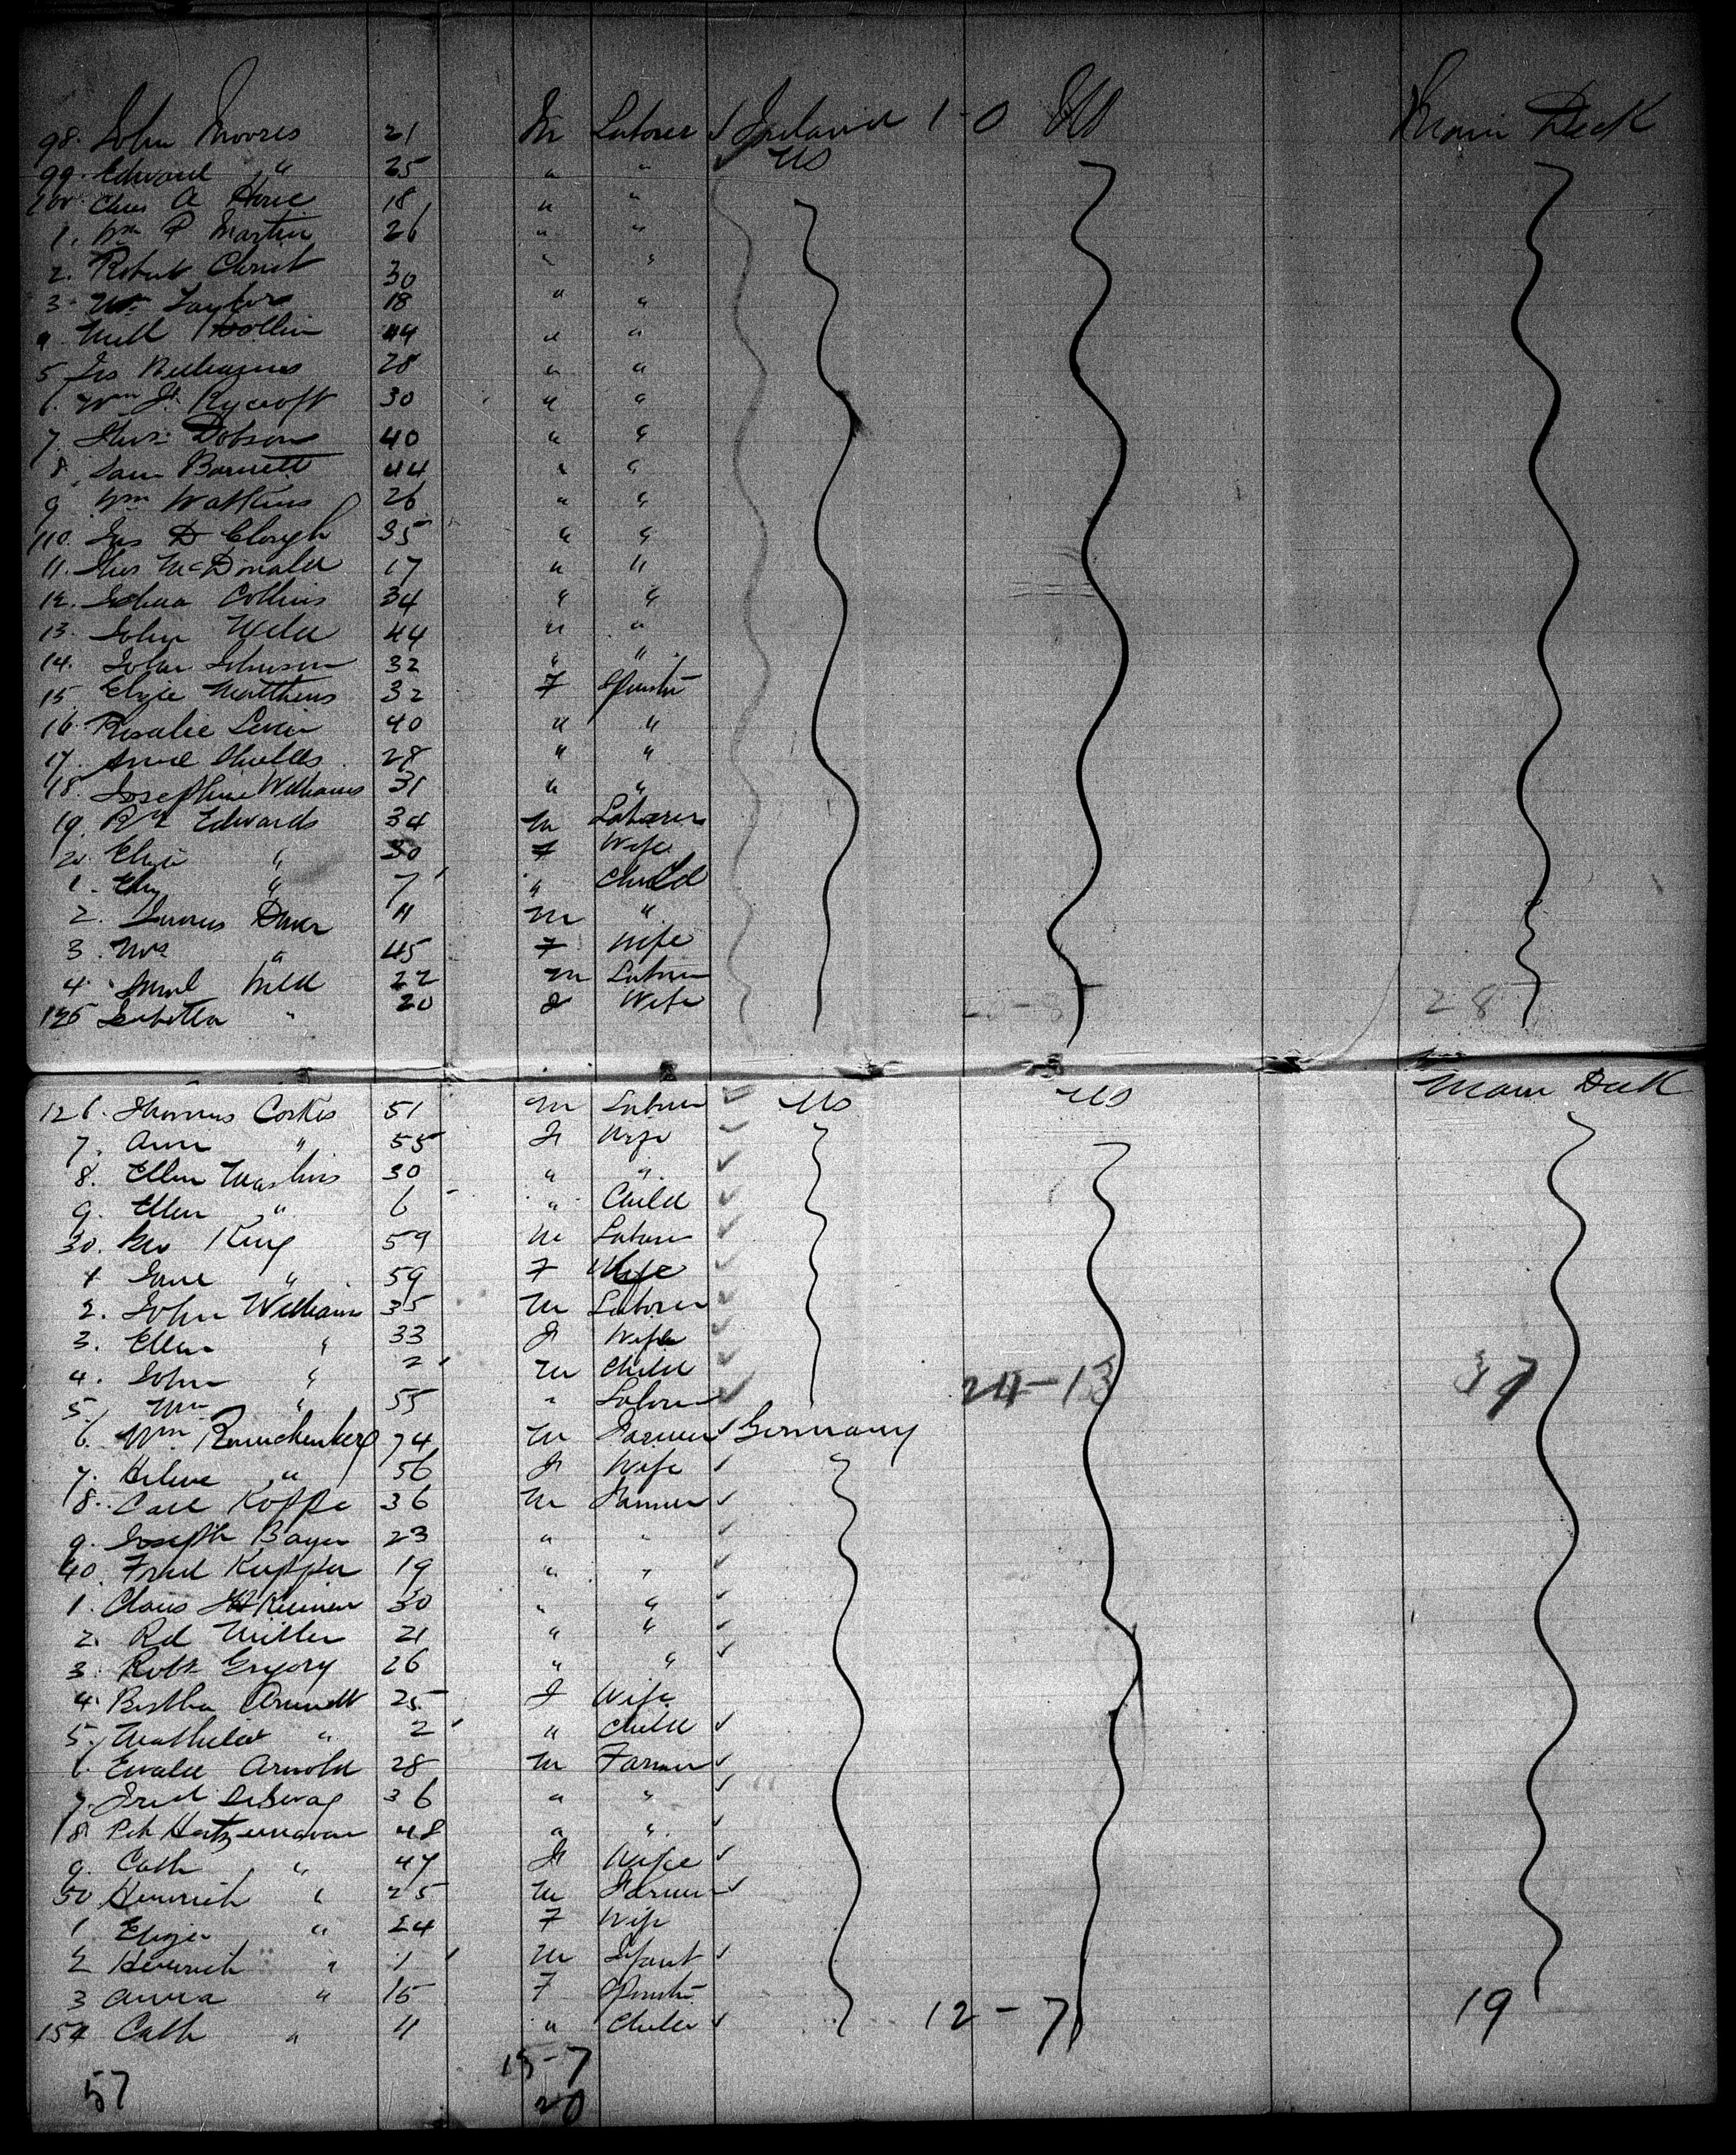 98. John Moores 21 M Laborer ✓ Ireland 1-0 US Main Deck
99. Edward " 25 " " ✓ US
100. Chas A 18 " "
1. Wm P Martin 26 " "
2. Robert Christ 30 " "
3. Wm Taylor 18 " "
4. 44 " "
5. Jas Williams 28 " "
6. Wm H. Rycroft 30 " "
7. Thos Dobson 40 " "
8. Sam Barnett 44 " "
9. Wm Watkins 26 " "
110. Jas D Clough 35 " "
11. Thos McDonald 17 " "
12. Collins 34 " "
13. John 44 " "
14. John Johnson 32 " "
15. Elyie Matthews 32 F Spinstr
16. Rosalie Levin 40 " "
17. Annie Shields 28 " "
18. Josephine Williams 31 " "
19. Rd Edwards 34 M Laborer
20. Eliza " 30 F Wife
1. " 7 " Child
2. 11 M "
3. Mrs " 45 F Wife
4. Saml 22 M Laborer
125 Isabella " 20 F Wife 28
126. Thomas 51 M Laborer ✓ US US Main Deck
7. Ann " 55 F Wife ✓
8. Ellen 30 " " ✓
9. Ellen " 6 " Child ✓
30. Geo King 59 M Laborer ✓
1 Jane " 59 F Wife ✓
2. John Williams 35 M Laborer ✓
3. Ellen " 33 F Wife ✓
4. John " 2 M Child ✓ 24-13 37
5. Wm " 55 " Laborer ✓
6. Wm 74 M Farmer ✓ Germany
7. Helene " 56 F Wife ✓
8. Carl Koppe 36 M Farmer ✓
9. Joseph Bayer 23 " " ✓
40. Fred 19 " " ✓
1. Claus 30 " " ✓
2. Rd Miller 21 " " ✓
3. Robt Gregory 26 " " ✓
4. Bertha 25 F Wife
5. " 2 " Child ✓
6. Ewald Arnold 28 M Farmer ✓
7. Fred 36 " " ✓
8. 48 " " ✓
9. Cath " 47 F Wife ✓
50 Heinrich " 25 M Farmer ✓
1 Eliza " 24 F Wife
2 Heinrich " 1 M Infant ✓
3 Anna " 15 F Spinstr
154 Cath " 11 " Child ✓ 12-7 19
57 13-7
20